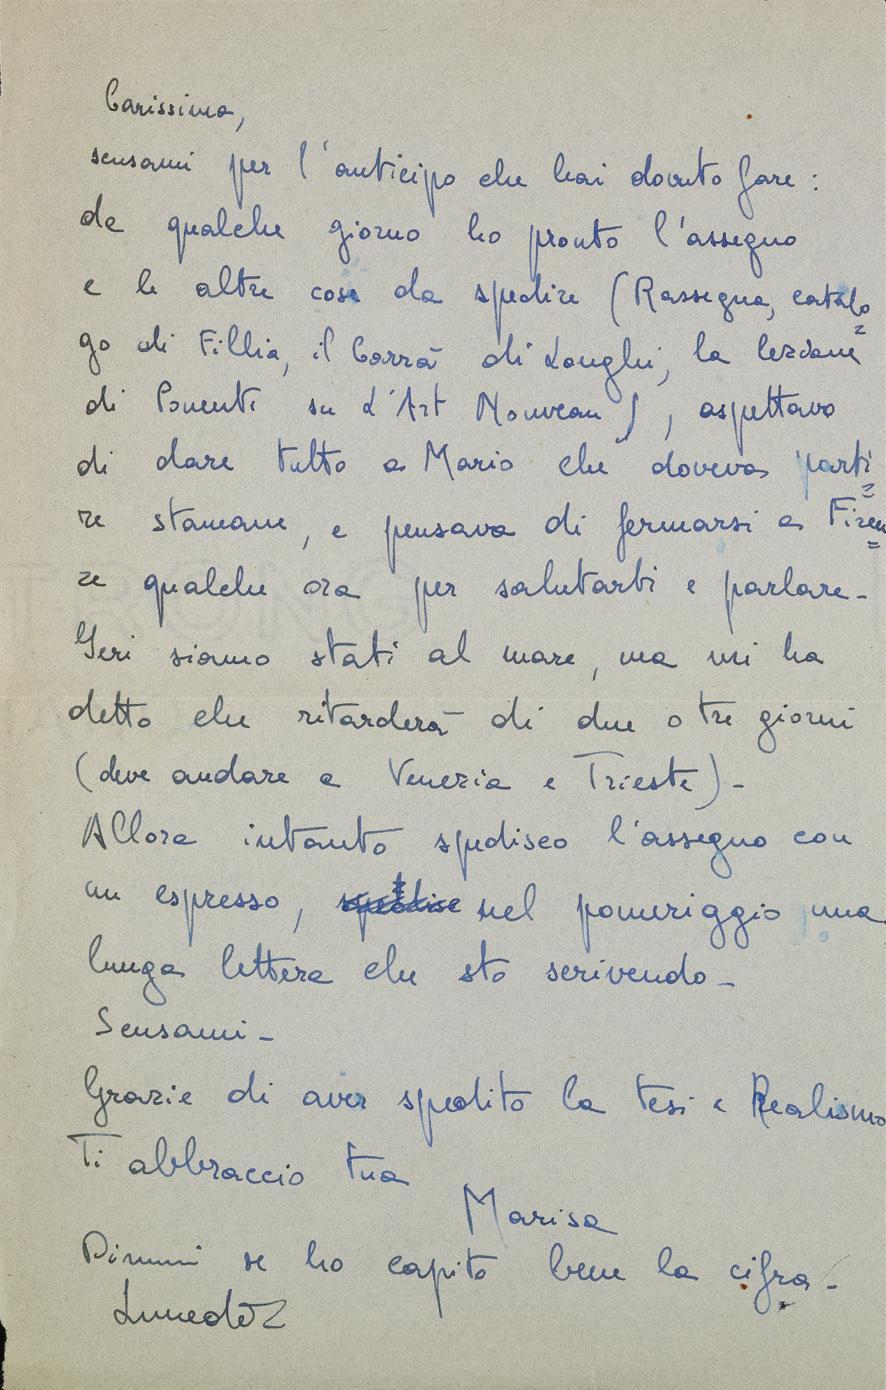 Carissimo,
scusami per l'anticipo che hai dovuto fare:
da qualche giorno ho pronto l'assegno
e le altre cose da spedire (Rassegna, catalo=
go di Fillia, il Carrà di Longhi, la lezione
di Ponenti su L'Art Nouveau), aspettavo
di dare tutto a Mario che doveva parti=
re stamane, e pensava di fermarsi a Firen=
ze qualche ora per salutarti e parlare-
Ieri siamo stati al mare, ma mi ha
detto che ritarderà di due o tre giorni
(deve andare a Venezia e Trieste)-
Allora intanto spedisco l'assegno con
un espresso, nel pomeriggio una
lunga lettera che sto scrivendo-
Scusami-
Grazie di aver spedito la tesi e Realismo
Ti abbraccio tua
Marisa
Dimmi se ho capito bene la cifra-
Lunedì